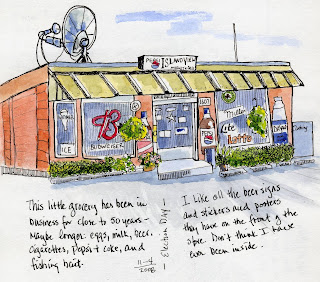 ISLAND VIEW
ICE
B
BUDWEISER
Lotto
This little grocery has been in
business for close to 50 years -
Maybe longer. eggs, milk, beer,
cigarettes, pepsi & coke, and
fishing bait.
- Election Day -
11-4
2008
I like all the beer signs
and stickers and posters
they have on the front of the
store. Don't think I have
ever been inside.